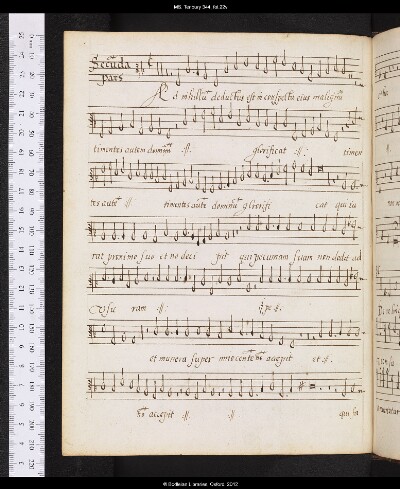 MS. Tenbury 344, fol.22v
Secũda
pars
Ad nihilũ deductus est in conspectu eius malignũ
timentes autem dominũ :||: glorificat :||: timen
tes autẽ :||: timentes autẽ dominũ glorifi cat qui iu
rat proximo suo et nõ deci pit qui pecuniam suam non dedit ad
usu ram :||:
et munera super innocentẽ nõ accepit et :||:
nõ accepit :||: :||: qui fa
© Bodleian Libraries, Oxford, 2012